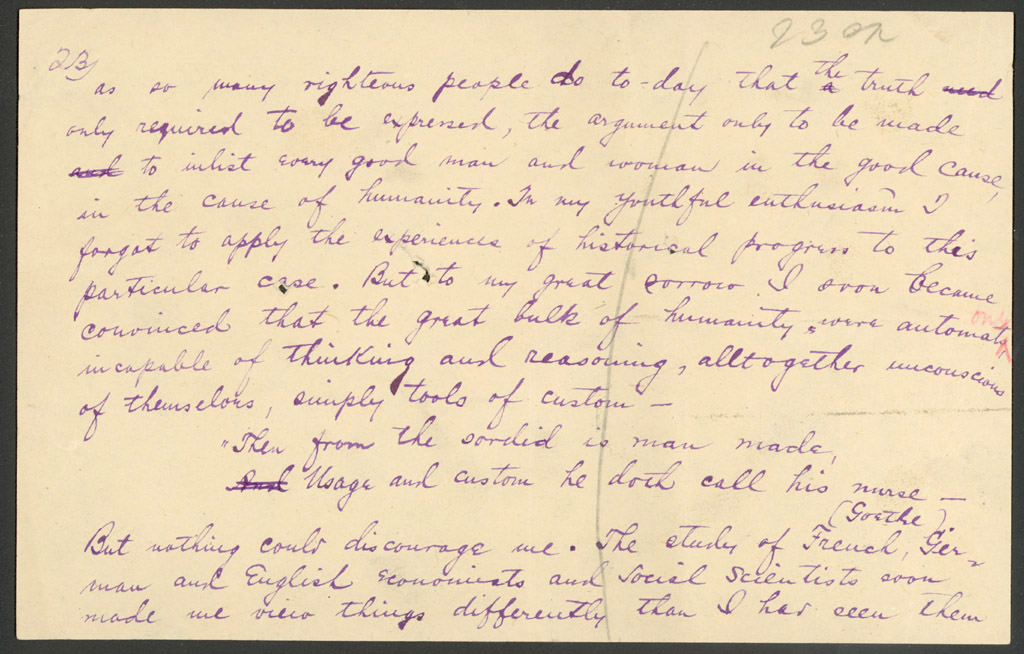 23 on
23)
as so many righteous people do to-day that the a truth need
only required to be expressed, the argument only to be made
and to inlist every good man and woman in the good cause,
in the cause of humanity. In my youthful enthusiasm I
forgot to apply the experiences of historical progress to this
particular case. But to my great sorrow I soon became
convinced that the great bulk of humanity were automats
only
incapable of thinking and reasoning, alltogether unconscious
of themselvs, simply tools of custom —
"Then from the sordid is man made,
And Usage and custom he doth call his nurse —
(Goethe).
But nothing could discourage me. The study of French, Ger-
man and English economists and Social Scientists soon
made me view things differently than I had seen them